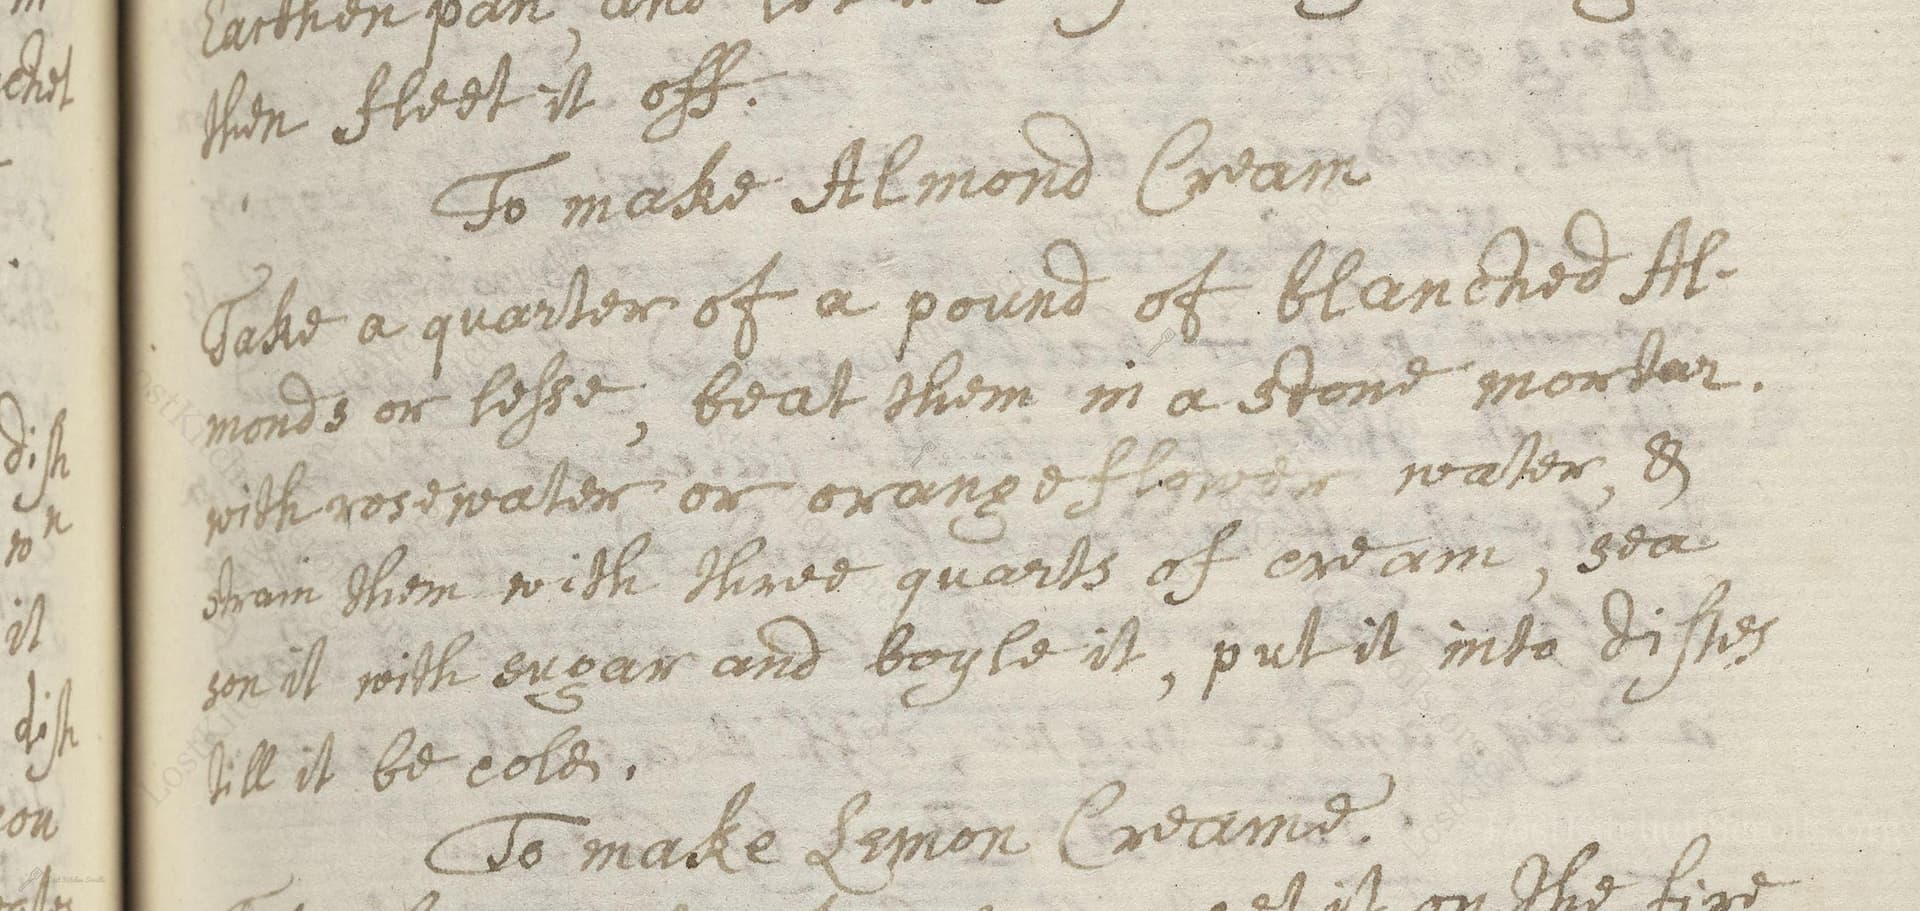 Earthen pan, and
then fleet it off.
To make Almond Cream
Take a quarter of a pound of blanched Al-
monds or lesse, beat them in a stone mortar.
with rosewater or orangeflower water, &
strain them with three quarts of cream, sea
son it with sugar and boyle it, put it into dishes
till it be cold.
To make Lemon Creame.
it on the fire
dish
it
dish